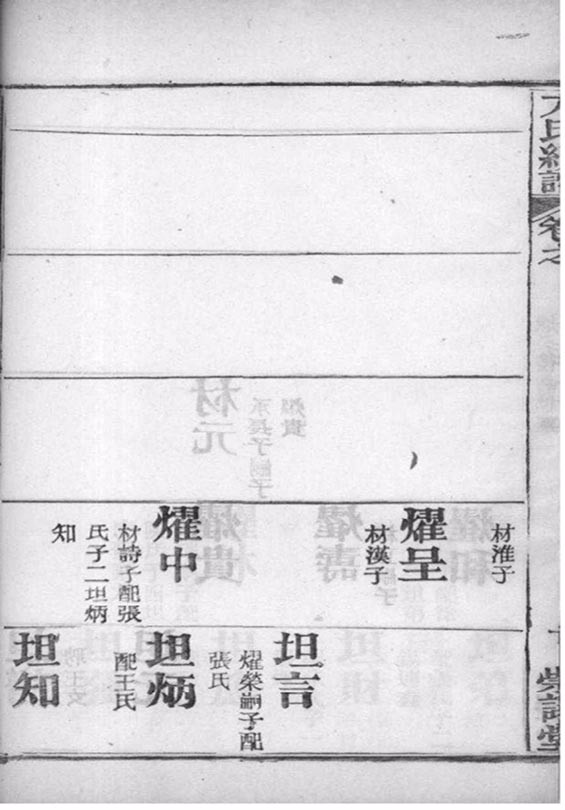 卷之
材淮子
燿呈
材漢子
燿中
材詩子配張
氏子二坦炳
知
坦言
燿榮嗣子配
張氏
坦炳
配王氏
坦知